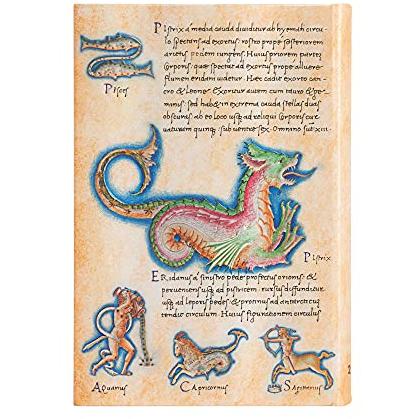 Piſces
PIſtrix á media cauda diuiditur ab hyemali circu⸗
lo ſpectans ad exortus: roſtro propé poſteriorem
arietis pedem coniungens. huius priorem partem
corporis: quæ ſpectat ad exortus propé alluere⸗
flumen eridani uidetur. Hæc cadit exorto can⸗
cro & Leone: Exoritur autem cum tauro & ge⸗
minis: ſed habet in extrema cauda ſtellas duas
obſcuras: ab eo loco uſq; ad reliqui corporis cur
uaturam quinq; ſub uentre ſex. Omnino ſut xiii.
PIſtrix
ERidanus á ſiniſtro pede profectus orionis: &
perueniens uſq; ad piſtricem: rurſus diffunditur
uſq; ad leporis pedes: & protinus ad antarcticum
tendit circulum. Huius figurationem circulus
AQuarius
CApricornus
SAgittarius